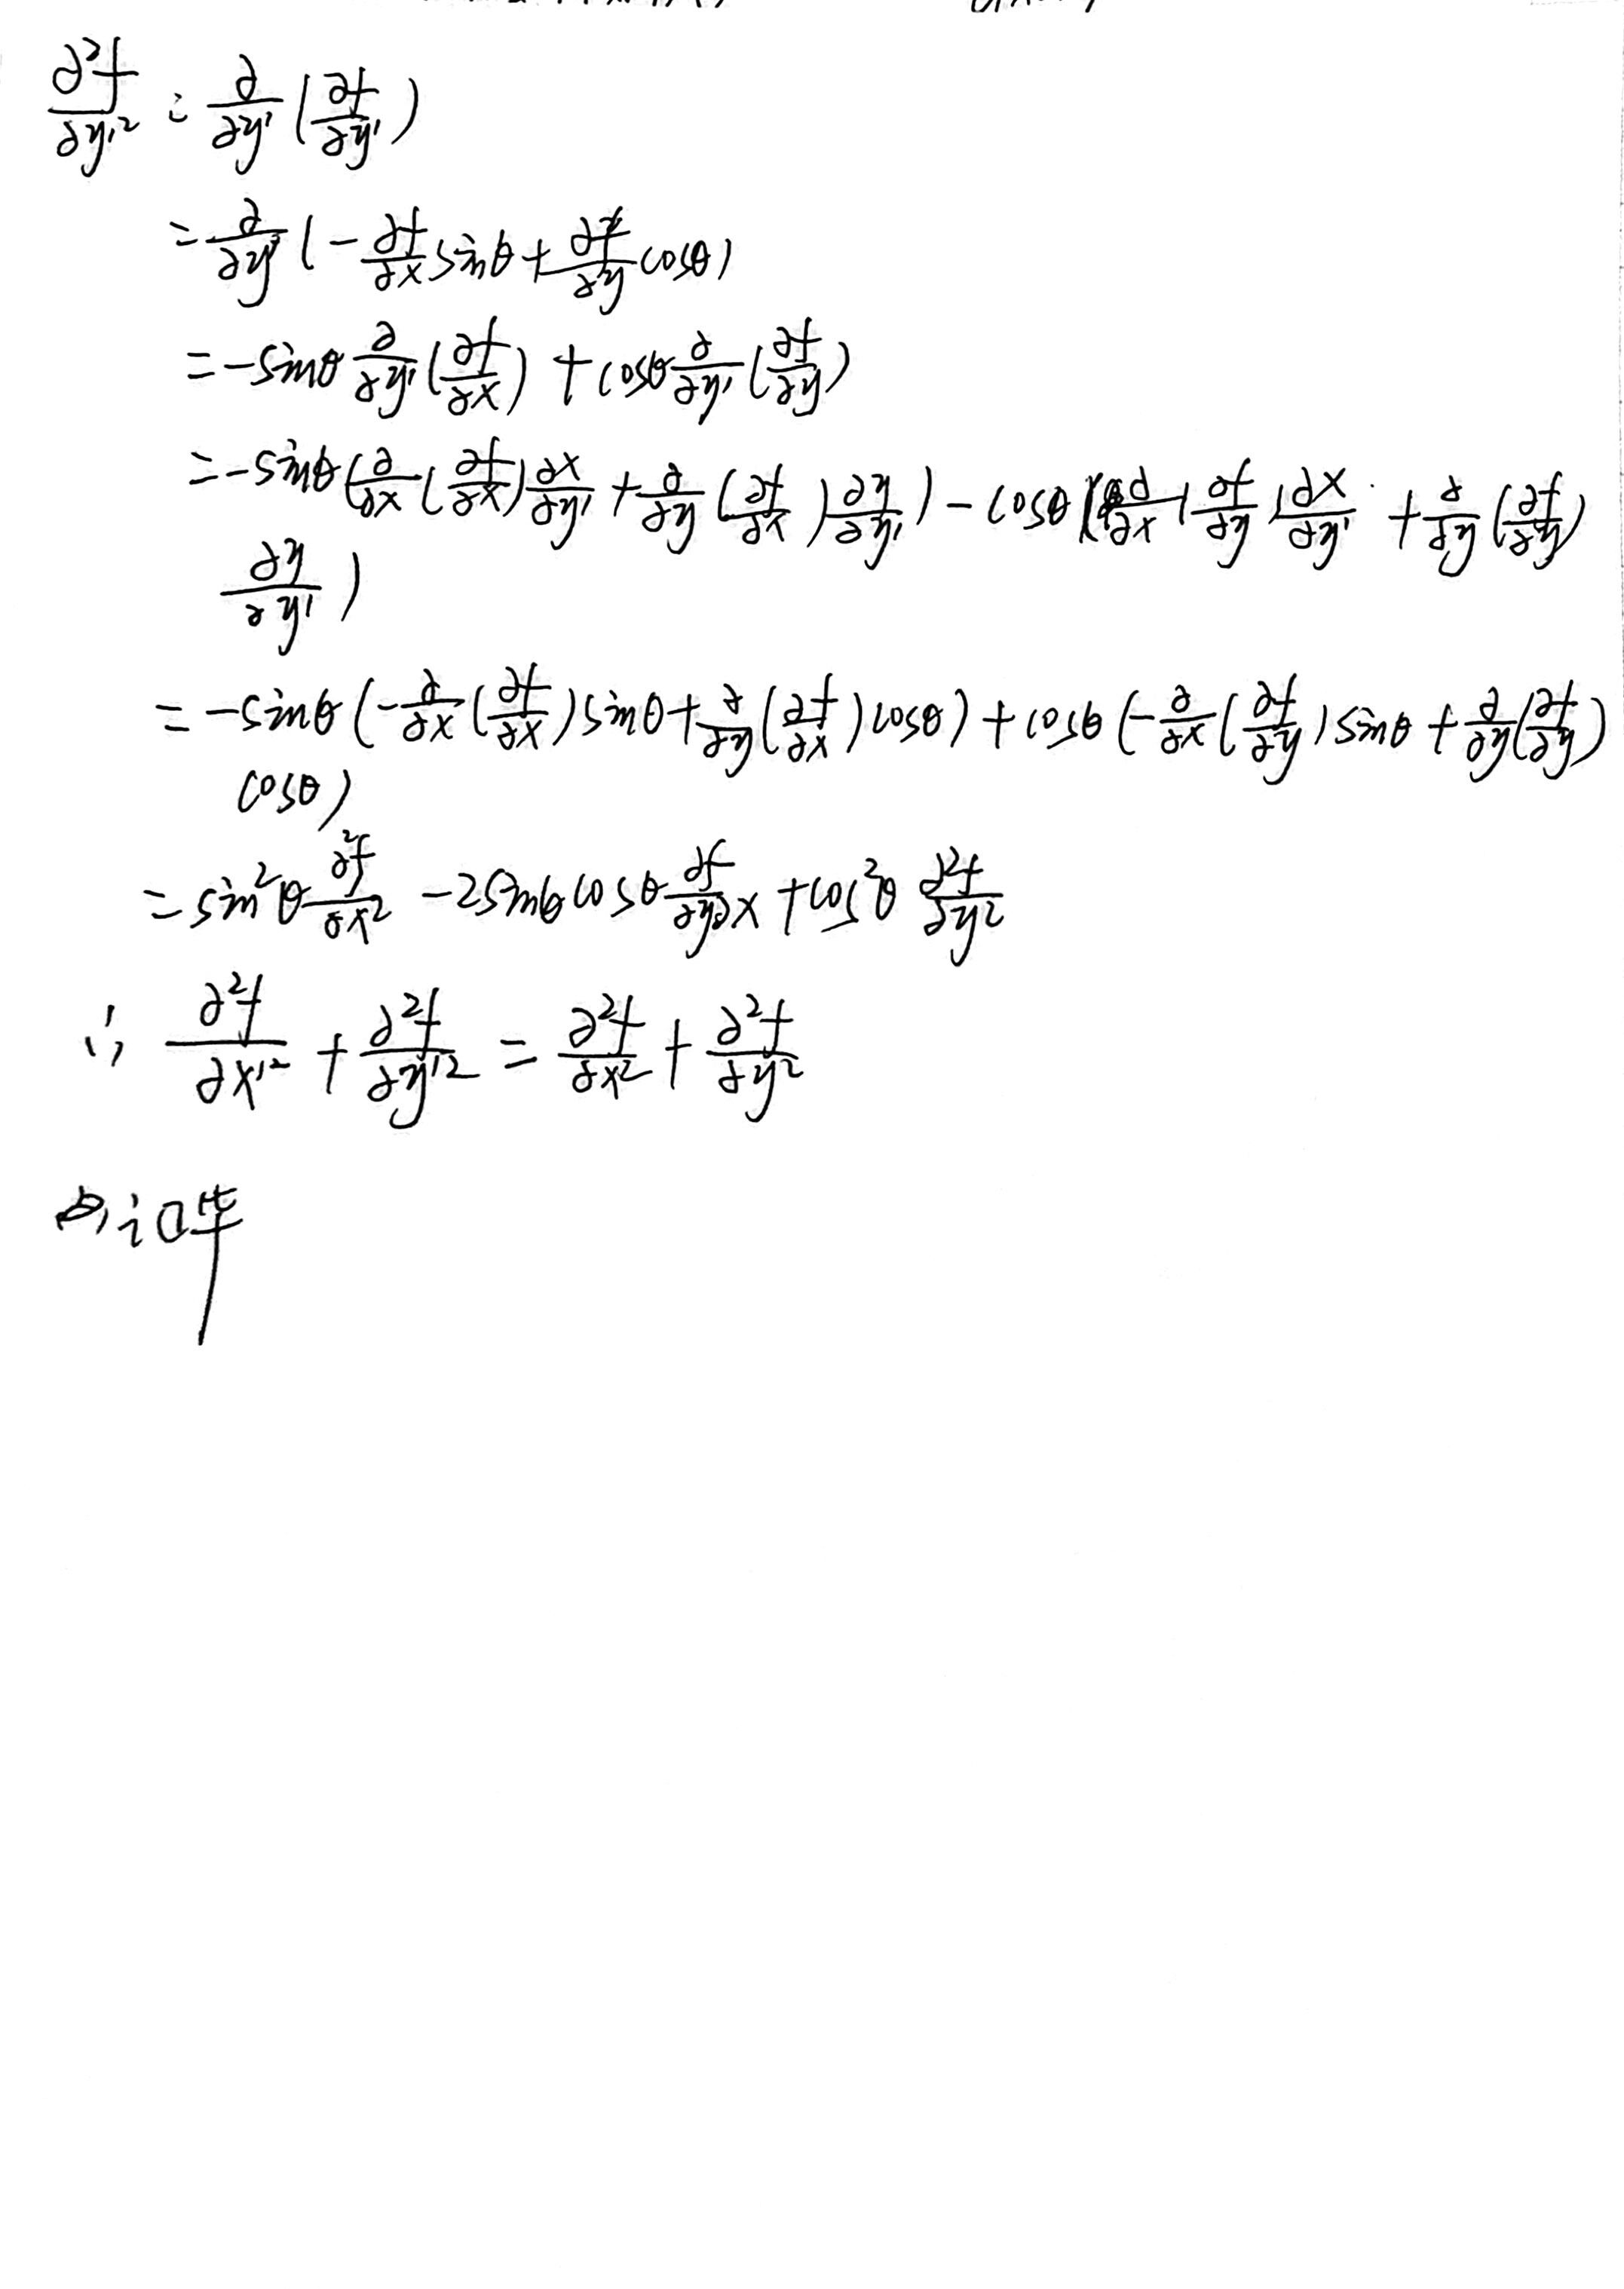 ∂²f/∂y'² = ∂/∂y' (∂f/∂y')
= ∂/∂y' (-∂f/∂x sinθ + ∂f/∂y cosθ)
= -sinθ ∂/∂y' (∂f/∂x) + cosθ ∂/∂y' (∂f/∂y)
= -sinθ (∂/∂x (∂f/∂x) ∂x/∂y' + ∂/∂y (∂f/∂x) ∂y/∂y') - cosθ (∂/∂x (∂f/∂y) ∂x/∂y' + ∂/∂y (∂f/∂y)
∂y/∂y')
= -sinθ (-∂/∂x (∂f/∂x) sinθ + ∂/∂y (∂f/∂x) cosθ) + cosθ (-∂/∂x (∂f/∂y) sinθ + ∂/∂y (∂f/∂y)
cosθ)
= sin²θ ∂²f/∂x² - 2sinθcosθ ∂f/∂y∂x + cos²θ ∂²f/∂y²
∴ ∂²f/∂x'² + ∂²f/∂y'² = ∂²f/∂x² + ∂²f/∂y²
证毕